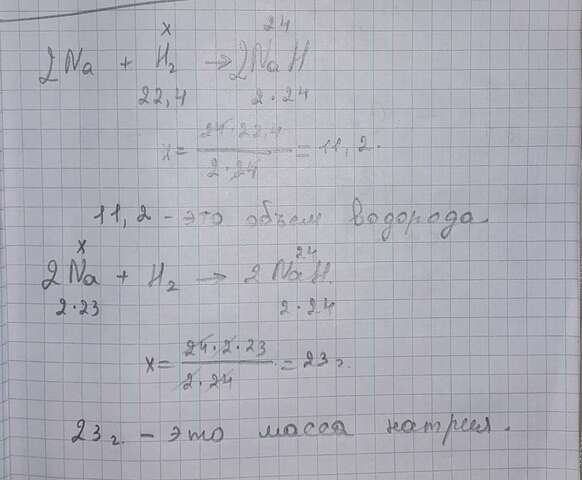 x 24
2Na + H₂ → 2NaH
22,4 2·24
x = 24·22,4 / 2·24 = 11,2.
11,2 - это объем водорода
x 24
2Na + H₂ → 2NaH
2·23 2·24
x = 24·2·23 / 2·24 = 23 г.
23 г. - это масса натрия.